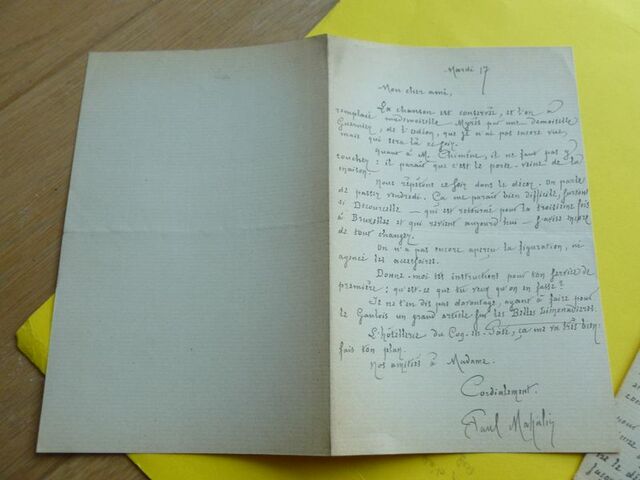 Mardi 17
Mon cher ami,
La chanson est conservée, et l'on a
remplacé mademoiselle Myris par une demoiselle
Guernier, de l'Odéon, que je n'ai pas encore vue,
mais qui sera là ce soir.
Quant à M. Chimène, il ne faut pas y
toucher : il paraît que c'est le porte-veine de la
maison.
Nous répétons ce soir dans le décor. On parle
de passer vendredi. Ça me paraît bien difficile, surtout
si Decourcelle — qui est retourné pour la troisième fois
à Bruxelles et qui revient aujourd'hui — s'avise encore
de tout changer.
On n'a pas encore aperçu la figuration, ni
agencé les accessoires.
Donne-moi tes instructions pour ton service de
première : qu'est-ce que tu veux qu'on en fasse ?
Je ne t'en dis pas davantage, ayant à faire pour
le Gaulois un grand article sur les Belles Limonadières.
L'hôtellerie du Coq-en-Pâte, ça me va très bien :
fais ton plan.
Nos amitiés à Madame.
Cordialement.
Paul Mahalin